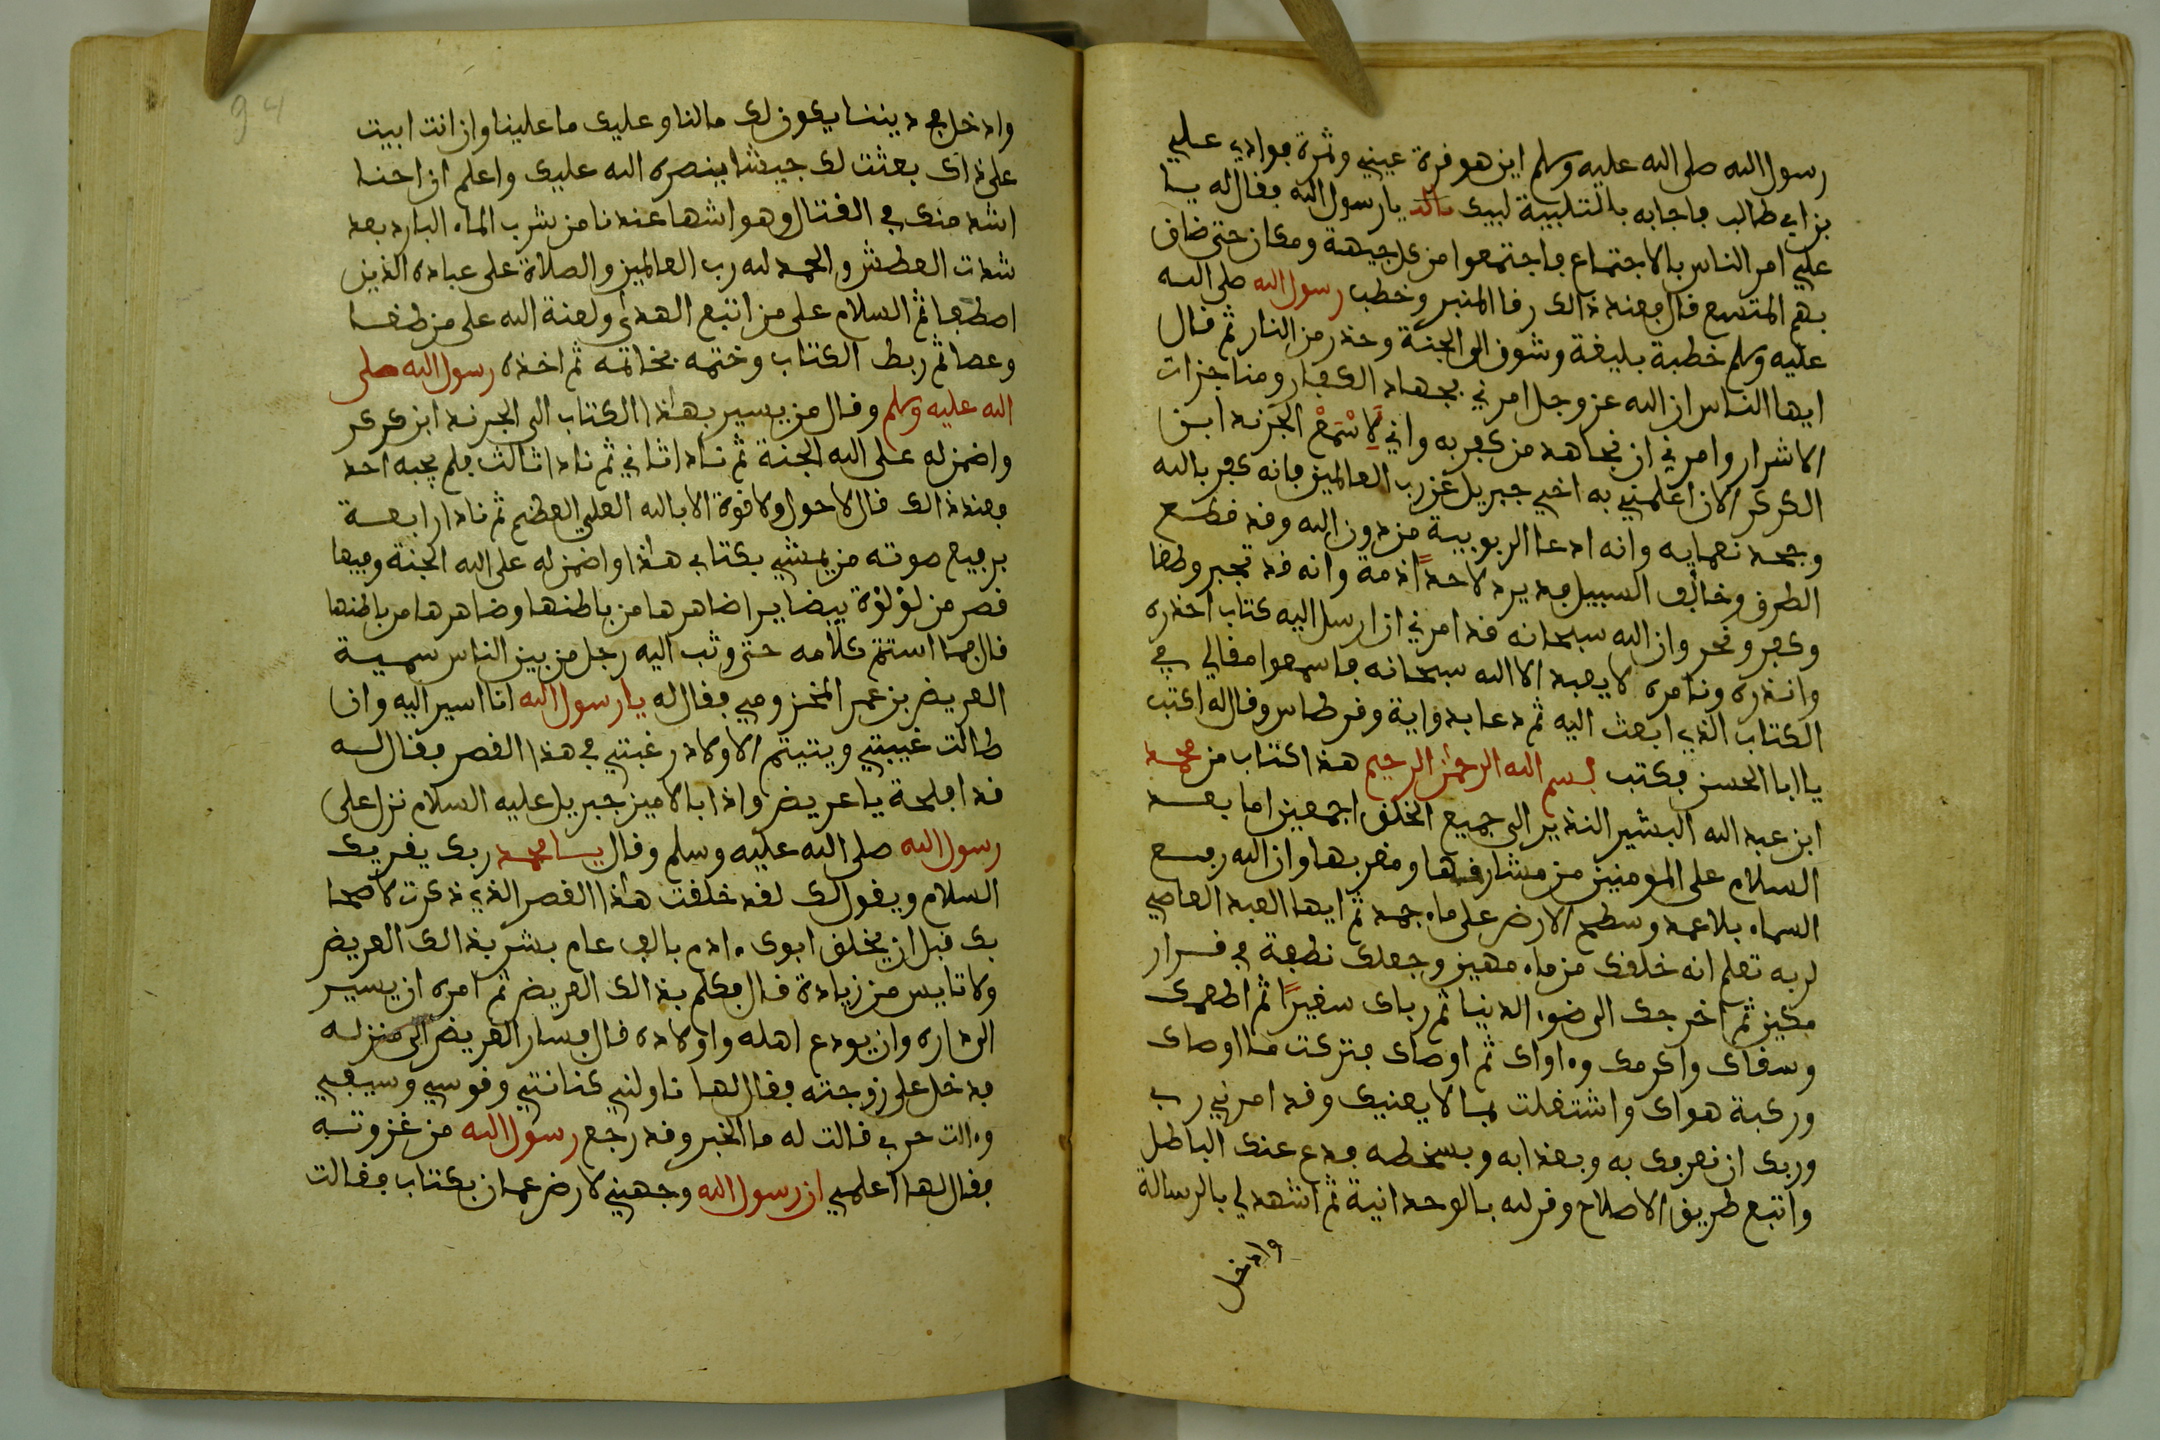 رسول الله صلى الله عليه وسلم اين هو قرة عيني وثمرة فوادي علي
بن ابي طالب فاجابه بالتلبية لبيك يارسول الله فقال له يا
علي امر الناس بالاجتماع فاجتمعوا من كل جيهة ومكان حتى ضاق
بهم المتسع قال فعند ذالك رقا المنبر وخطب رسول الله صلى الله
عليه وسلم خطبة بليغة وشوق الى الجنة وحذر من النار ثم قال
ايها الناس ان الله عز وجل امرني بجهاد الكفار ومناجزات
الاشرار وامرني ان نجاهد من كفر به واني لاسمع الجرند ابن
الكركر الان اعلمني به اخي جبريل عن رب العالمين فانه كفر بالله
وجحد نعمايه وانه ادعا الربوبية من دون الله وقد قطع
الطرق وخالف السبيل فد يرد لاحدا اذمة وانه قد تجبر وطغا
وكفر وفجر وان الله سبحانه قد امرني ان ارسل اليه كتاب احذره
وانذره ونامره لا يعبد الا الله سبحانه فاسمعوا مقالي في
الكتاب الذي ابعث اليه ثم دعا بدواية وقرطاس وقال له اكتب
يا ابا الحسن فكتب بسم الله الرحمن الرحيم هذا كتاب من محمد
ابن عبد الله البشير النذير الى جميع الخلق اجمعين اما بعد
السلام على المومنين من مشارقها ومغربها وان الله رفع
السماء بلا عمد وسطح الارض على ماء جمد ثم ايها العبد العاصي
لربه تعلم انه خلقك من ماء مهين وجعلك نطفة في قرار
مكين ثم اخرجك الى ضوء الدنيا ثم رباك سغيرا ثم اطعمك
وسقاك واكرمك وءاواك ثم اوصاك فتركت ما اوصاك
وركبة هواك واشتغلت بما لا يعنيك وقد امرني رب
وربك ان نعرفك به وبعذابه وبسخطه فدع عنك الباطل
واتبع طريق الاصلاح وقر لله بالوحدانية ثم اشهد لي بالرسالة
وادخل
94
وادخل في ديننا يكون لك مالنا وعليك ما علينا وان انت ابيت
على ذاك بعثت لك جيشا ينصره الله عليك واعلم ان احنا
اشد منك في القتال وهو اشها عندنا من شرب الماء البارد بعد
شدت العطش والحمد لله رب العالمين والصلاة على عباده الذين
اصطفا ثم السلام على من اتبع الهدى ولعنة الله على من طغا
وعصا ثم ربط الكتاب وختمه بخاتمه ثم اخذه رسول الله صلى
الله عليه وسلم وقال من يسير بهذا الكتاب الى الجرند ابن كركر
واضمن له على الله الجنة ثم نادا ثاني ثم نادا ثالث فلم يجبه احد
فعند ذالك قال لا حول ولا قوة الا بالله العلي العظيم ثم نادا رابعة
برفيع صوته من يمشي بكتابي هذا واضمن له على الله الجنة وفيها
قصر من لؤلؤة بيضا يرا ضاهرها من باطنها وضاهرها من باطنها
قال فما استتم كلامه حتى وثب اليه رجل من بين الناس سمية
العريض بن عمر المخزومي فقال له يا رسول الله انا اسير اليه وان
طالت غيبتي ويتيتم الاولاد رغبتي في هذا القصر فقال له
قد افلحة يا عريض واذا بالامين جبريل عليه السلام نزل على
رسول الله صلى الله عليه وسلم وقال يا محمد ربك يقريك
السلام ويقول لك لقد خلقت هذا القصر الذي ذكرت لاصحا
بك قبل ان يخلق ابوك ءادم بالف عام بشر بذالك العريض
ولا تايس من زيادة قال فكلم بذالك العريض ثم امره ان يسير
الى داره وان يودع اهله واولاده قال فسار العريض الى منزله
فدخل على زوجته فقال لها ناوليني كنانتي وقوسي وسيفي
وءالت حربي قالت له ما الخبر وقد رجع رسول الله من غزوته
فقال لها اعلمي ان رسول الله وجهني لارض عمان بكتاب فقالت